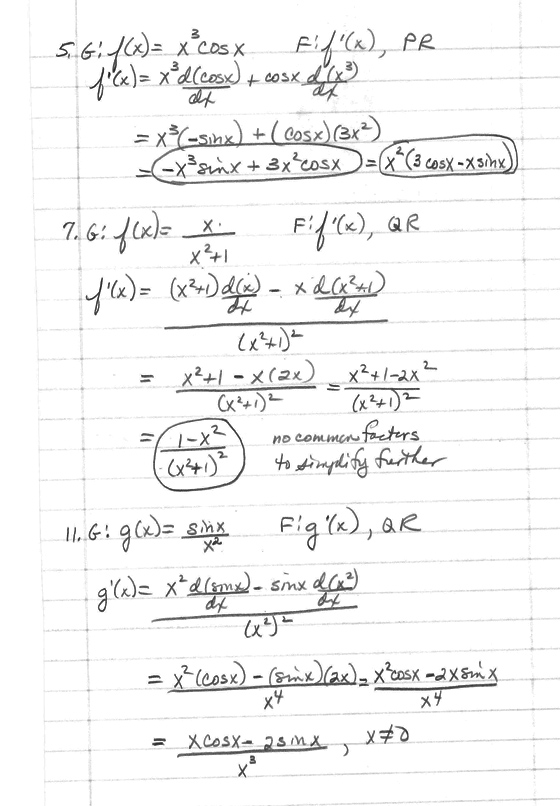 5. G: f(x) = x³cosx F: f'(x), PR
f'(x) = x³ d(cosx)/dx + cosx d(x³)/dx
= x³(-sinx) + (cosx)(3x²)
= -x³sinx + 3x²cosx = x²(3cosx - xsinx)
7. G: f(x) = x/(x²+1) F: f'(x), QR
f'(x) = ((x²+1) d(x)/dx - x d(x²+1)/dx)/(x²+1)²
= (x²+1 - x(2x))/(x²+1)² = (x²+1-2x²)/(x²+1)²
= (1-x²)/(x²+1)² no common factors
to simplify further
11. G: g(x) = sinx/x² F: g'(x), QR
g'(x) = (x² d(sinx)/dx - sinx d(x²)/dx)/(x²)²
= (x²(cosx) - (sinx)(2x))/x⁴ = (x²cosx - 2xsinx)/x⁴
= (xcosx - 2sinx)/x³, x≠0